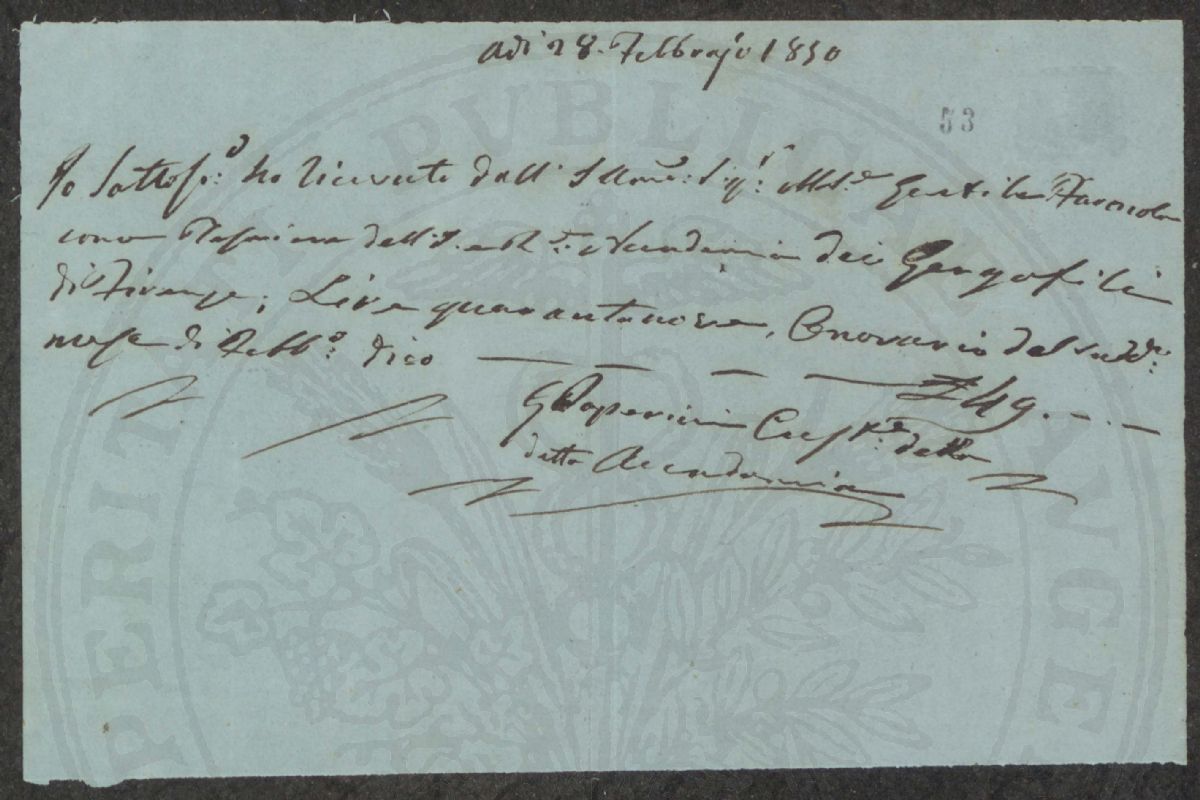 Adì 28. Febbrajo 1850
53
Io Sottosc.º ho ricevuto dall' Illmo: Sig.r March.e Gentile Farinola
come Tesoriere dell' I. e R.e Accademia dei Georgofili
di Firenze, Lire quarantanove, Onorario del sudd.º
mese di Febb.º dico — — — — £ 49. — . —
G Papericini Cust.e della
detta Accademia
PERITATI PVBLICAE